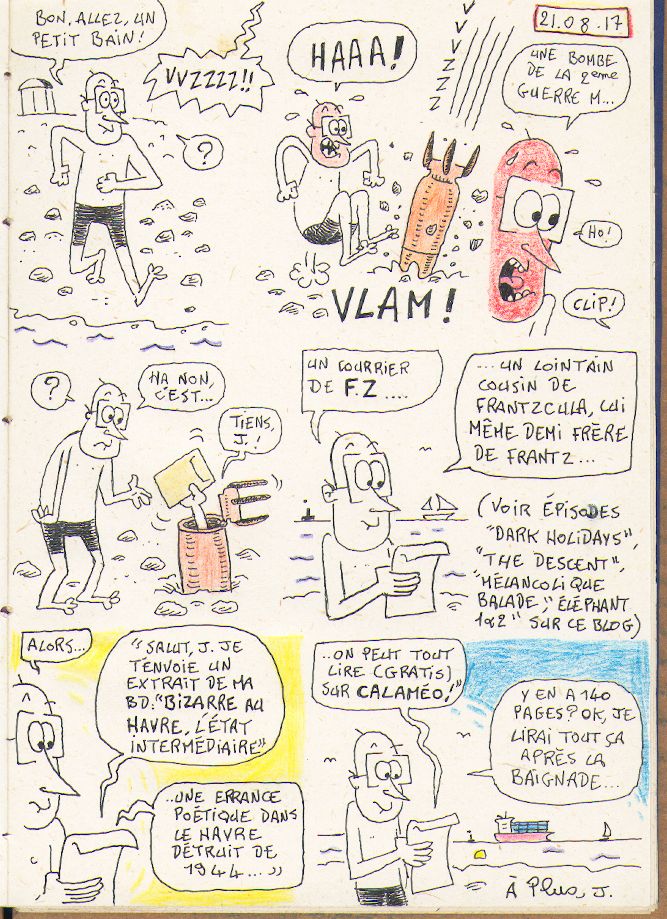 BON, ALLEZ, UN
PETIT BAIN!
VVZZZZ!!
?
HAAA!
V
V
V
Z
Z
Z
Z
21.08.17
UNE BOMBE
DE LA 2eme
GUERRE M...
HO!
CLIP!
VLAM!
?
HA NON,
C'EST...
TIENS,
J.!
UN COURRIER
DE F.Z ....
... UN LOINTAIN
COUSIN DE
FRANTZCULA, LUI
MÊME DEMI FRÈRE
DE FRANTZ...
(VOIR ÉPISODES
"DARK HOLIDAYS",
"THE DESCENT",
"MÉLANCOLIQUE
BALADE," ÉLÉPHANT
1&2" SUR CE BLOG)
ALORS...
"SALUT, J. JE
T'ENVOIE UN
EXTRAIT DE MA
BD: "BIZARRE AU
HAVRE, L'ÉTAT
INTERMÉDIAIRE"
..UNE ERRANCE
POÉTIQUE DANS
LE HAVRE
DÉTRUIT DE
1944..."
..ON PEUT TOUT
LIRE (GRATIS)
SUR CALAMÉO!"
Y EN A 140
PAGES? OK, JE
LIRAI TOUT ÇA
APRÈS LA
BAIGNADE...
À Plus, J.